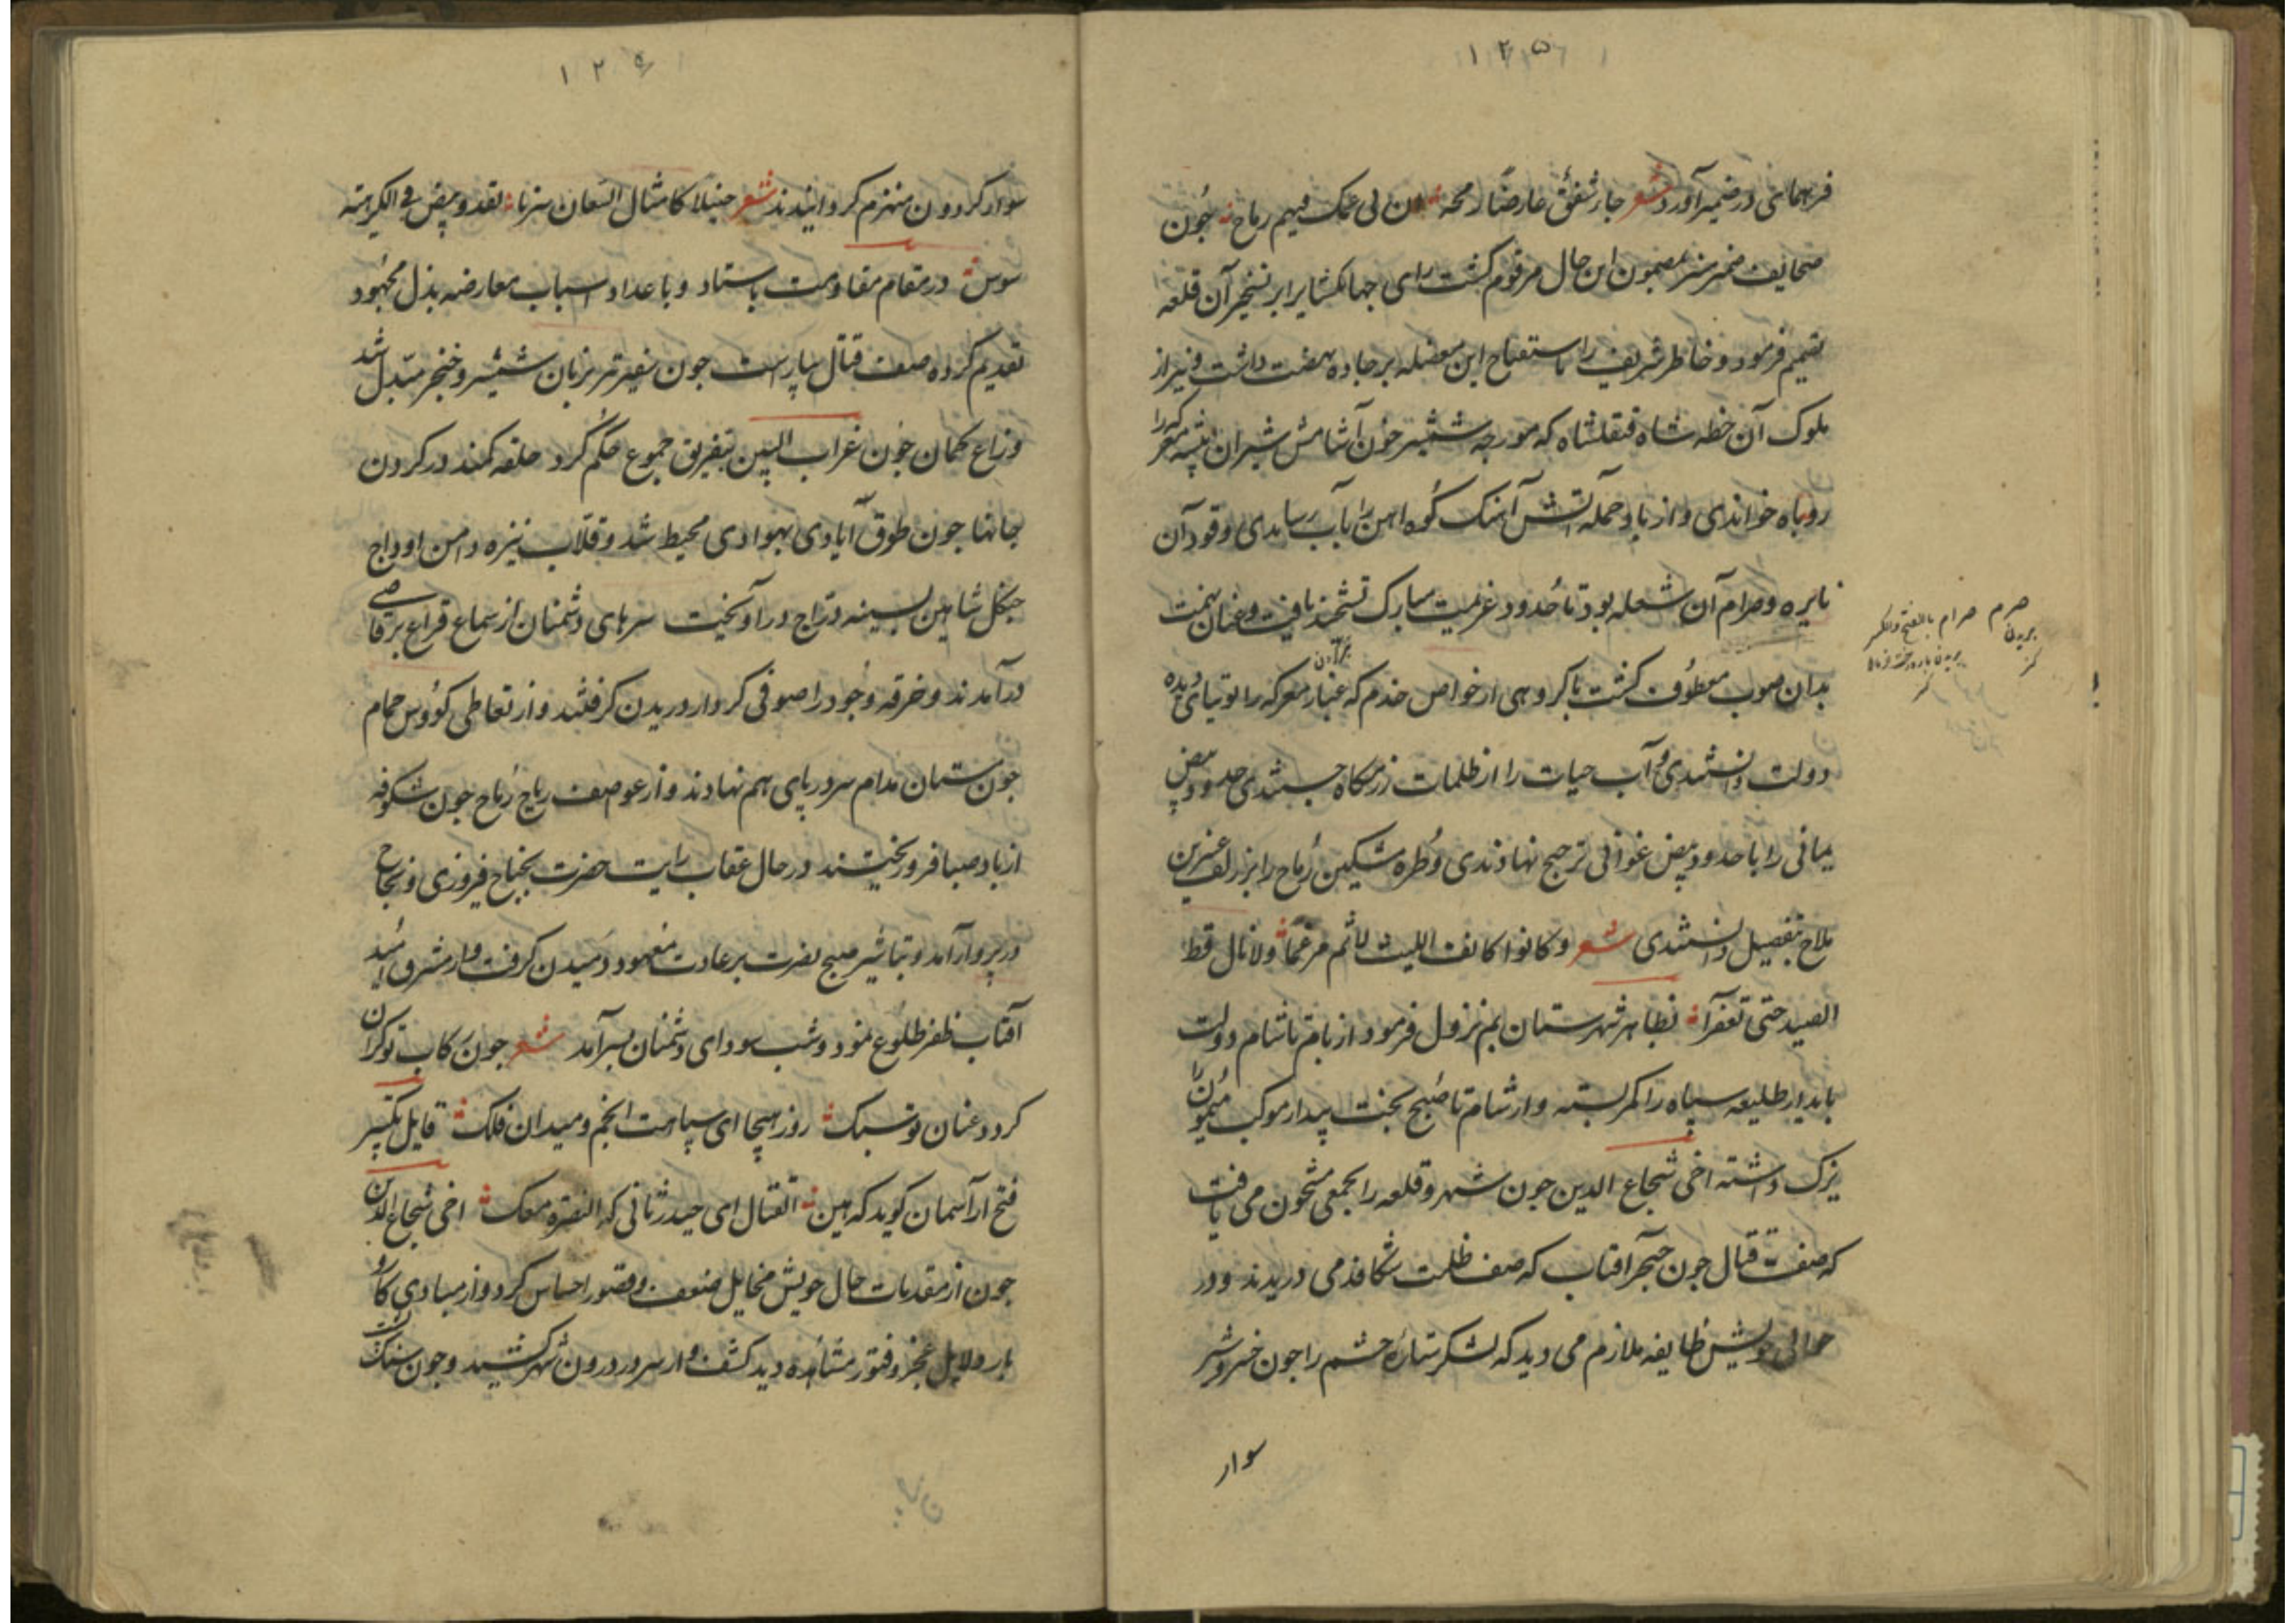 ۱۲۵
فرهمائی در ضمیر آورد شعر جاء شقیق عارضا رمحه ان بنی عمک فیهم رماح چون
صحایف ضمیر منیر بمضمون این حال مرقوم گشت رای جهانگشا برابر تسخیر آن قلعه
تصمیم فرمود و خاطر شریف را باستفتاح این معضله بر جاده نهضت داشت و نیز از
ملوک آن خطه شاه قتقلشاه که مورچه شمشیر خون آشامش شیران بیشه معرکه را
روباه خواندی و از باد حمله آتش آهنک کوه آهن را بآب رساندی وقود آن
نایره و ضرام آن شعله بود تا حدود عزیمت مبارک تشحیذ یافت و عنان نهمت
بدان صوب معطوف گشت با گروهی از خواص خدم که غبار معرکه را توتیای دیده
دولت دانستندی و آب حیات را از ظلمات رزمگاه جستندی حدود بیض
یمانی را با خدود بیض غوانی ترجیح نهادندی و طره مشکین رماح را بر زلف عنبرین
ملاح تفضیل دانستندی شعر و کانوا کانف اللیث لا شم مرغما ولا نال قط
الصید حتی تعفرا بظاهر شهرستان بم نزول فرمود از بام تا شام دولت
بایدار طلیعه سپاه را کمر بسته و از شام تا صبح بخت بیدار موکب میمون را
یزک داشته اخی شجاع الدین چون شهر و قلعه را بجمعی مشحون می یافت
که صف قتال چون خنجر آفتاب که صف ظلمت شکافد می دریدند و در
حوالی خویش طایفه ملازم می دید که لشکر ستاره حشم را چون خسرو شیر
سوار
ضرم ضرام بالفتح والکسر
۱۲۶
سوار گردون منهزم گردانیدند شعر خیلا کامثال السعالی شزبا تعدو ببیض فی الکریهة
شوس در مقام مقاومت باستاد و باعداد اسباب معارضه بذل مجهود
تقدیم کرده صف قتال بیاراست چون سفیر تیر بزبان شمشیر و خنجر مبدل شد
و زاغ کمان چون غراب البین بتفریق جموع حکم کرد حلقه کمند در گردن
جانها چون طوق ایادی بهوادی محیط شد و قلاب نیزه دامن اوداج
چنگل شاهین بسینه دراج در آویخت سرهای دشمنان از سماع قراع برقاصی
درآمدند و خرقه وجود را صوفی کردار دریدن گرفتند و از تعاطی کؤوس حمام
چون مستان مدام سر در پای هم نهادند و از عواصف ریاح رماح چون شکوفه
از باد صبا فرو ریختند در حال عقاب رایت حضرت بجناح فیروزی و نجاح
در پرواز آمد و تباشیر صبح نصرت بر عادت معهود دمیدن گرفت و از مشرق امید
آفتاب ظفر طلوع نمود و شب سودای دشمنان بسر آمد شعر چون رکاب تو گران
گردد عنان تو سبک روز هیجا ای سپاهت انجم و میدان فلک قایل تکبیر
فتح از آسمان گوید که هین القتال ای حیدر ثانی که النصرة معک اخی شجاع الدین
چون از مقدمات حال خویش مخایل ضعف و قصور احساس کرد و از مبادی کار
بار دلایل عجز و فتور مشاهده دید کشف وار سر در درون شهر کشید و چون